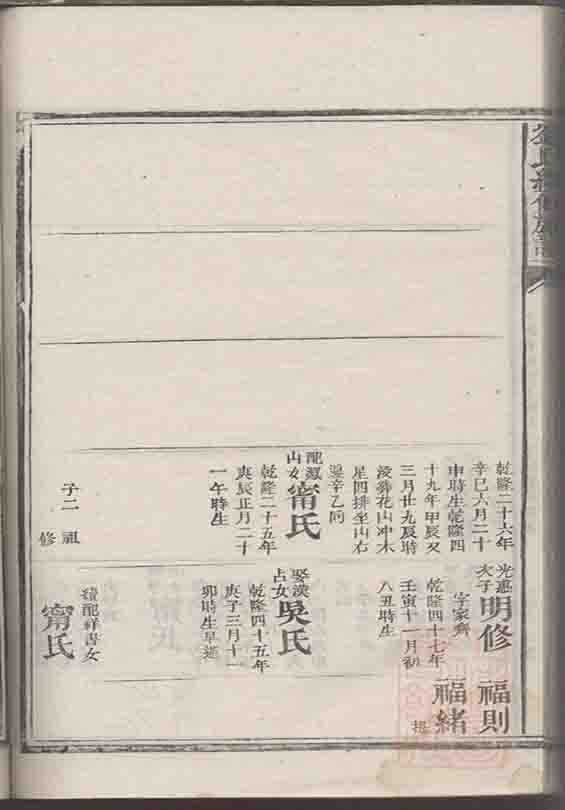 乾隆二十六年
辛巳六月二十
申時生乾隆四
十九年甲辰又
三月廿九辰時
沒葬花山冲木
星四排坐山右
辛乙向
山女甯氏
乾隆二十五年
庚辰正月二十
一午時生
子二 祖
修
光惠
夫子明修 福則
字家齊 福緒
乾隆四十七年
壬寅十一月初
八丑時生
娶漢
占女吳氏
乾隆四十五年
庚子三月十一
卯時生早逝
續龍祥書女
甯氏